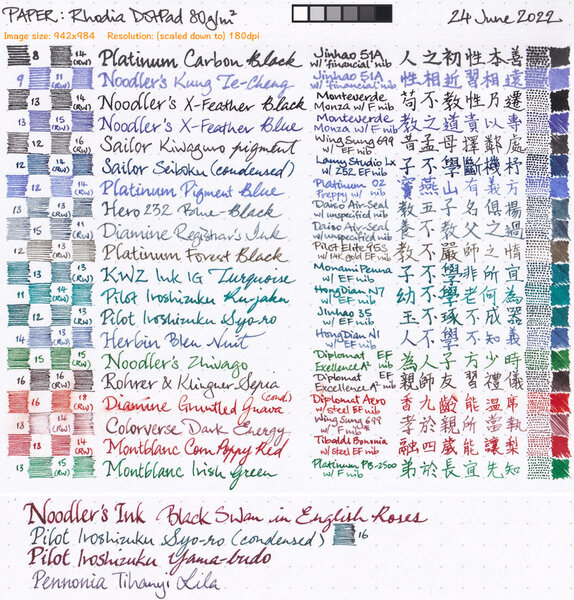 PAPER: Rhodia DotPad 80g/m² 24 June 2022
Image size: 942x984 Resolution: (scaled down to) 180dpi
8 14 (RW) Platinum Carbon Black Jinhao 51A w/ 'financial' nib 人之初性本善
9 11 (RW) Noodler's Kung Te-Cheng Jinhao 51A w/ 'financial' nib 性相近習相遠
13 14 (RW) Noodler's X-Feather Black Monteverde Monza w/ F nib 苟不教性乃遷
13 15 (RW) Noodler's X-Feather Blue Monteverde Monza w/ F nib 教之道貴以專
12 16 (RW) Sailor Kiwaguro pigment Wing Sung 699 w/ EF nib 昔孟母擇鄰處
12 14 (RW) Sailor Seiboku (condensed) Lamy Studio Lx w/ Z52 EF nib 子不學斷機杼
12 14 (RW) Platinum Pigment Blue Platinum 02 Preppy w/ nib 竇燕山有義方
13 13 (RW) Hero 232 Blue-Black Daiso Air-Seal w/ unspecified nib 教五子名俱揚
11 15 (RW) Diamine Registrar's Ink Daiso Air-Seal w/ unspecified nib 養不教父之過
12 15 (RW) Platinum Forest Black Pilot Elite 95S w/ 14K gold EF nib 教不嚴師之惰
13 13 (RW) KWZ Ink IG Turquoise Monami Penna w/ F nib 子不學非所宜
11 14 (RW) Pilot Iroshizuku Kujaku HongDian N7 w/ EF nib 幼不學老何為
12 14 (RW) Pilot Iroshizuku Syo-ro Jinhao 35 w/ EF nib 玉不琢不成器
14 13 (RW) Herbin Bleu Nuit HongDian N1 w/ EF nib 人不學不知義
15 15 (RW) Noodler's Zhivago Diplomat EF Excellence A² nib 為人子方少時
16 (RW) Rohrer & Klingner Sepia Diplomat EF Excellence A² nib 親師友習禮儀
16 18 (RW) Diamine Gruntled Guava (cond) Diplomat Aero w/ steel EF nib 香九齡能溫席
14 14 (RW) Colorverse Dark Energy Wing Sung 699 w/ F nib* 孝於親所當執
13 14 (RW) Montblanc Corn Poppy Red Tibaldi Bononia w/ steel EF nib 融四歲能讓梨
13 15 (RW) Montblanc Irish Green Platinum PB-2500 w/ F nib 弟於長宜先知
Noodler's Ink Black Swan in English Roses
Pilot Iroshizuku Syo-ro (condensed) 16
Pilot Iroshizuku Yama-budo
Pennonia Tihanyi Lila